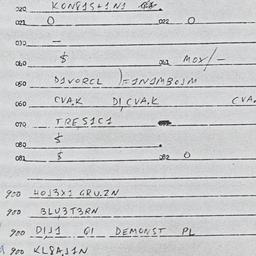 020 KON81S+1N1
021 0 022 0
030 —
040 $ 041 MOX/—
050 D1VORCL )=1N1MB01M
060 CVA.K DI,CVA.K CVA
070 TRES1C1
080 $
081 $ 082 0
900 H0J3X1 GRU.ZN
900 BLU3T3RN
900 DIJ1 GI DEMONST PL
900 KL8AJ1N